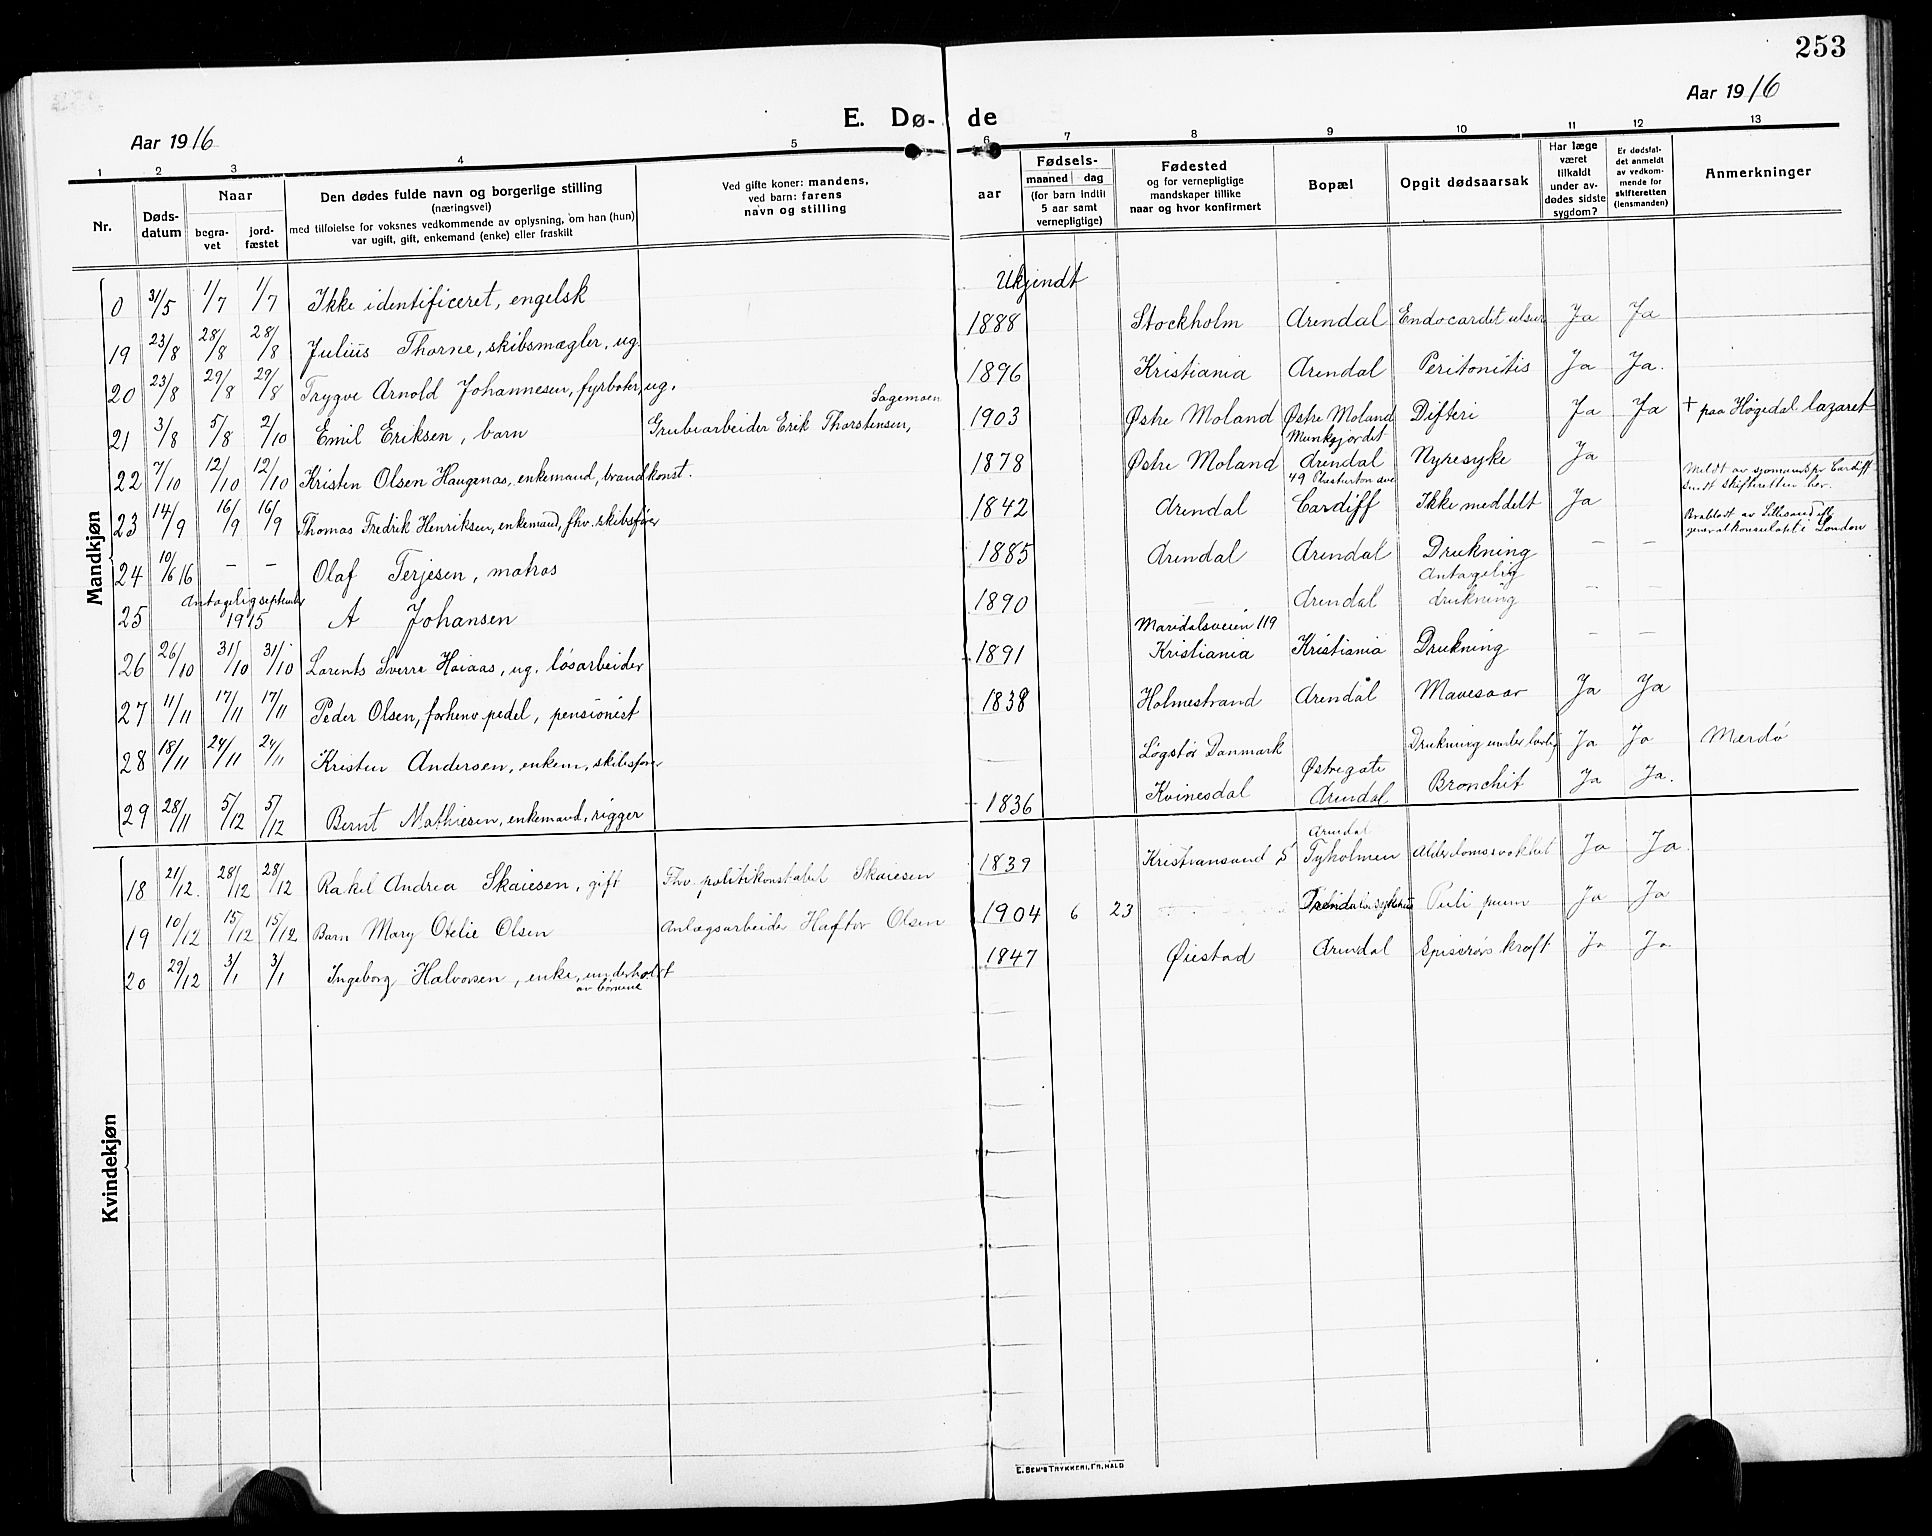 253
Aar 1916
E. Dø-
de
Aar 1916
1 2 3 4 5 6 7 8 9 10 11 12 13
Nr.
Døds-
datum
Naar
begra-
vet
jord-
fæstet
Den dødes fulde navn og borgerlige stilling
(næringsvei)
med tilføielse for voksnes vedkommende av oplysning, om han (hun)
var ugift, gift, enkemand (enke) eller fraskilt
Ved gifte koner: mandens,
ved barn: farens
navn og stilling
aar
Fødsels-
maaned dag
(for barn indtil
5 aar samt
vernepligtige)
Fødested
og for vernepligtige
mandskaper tillike
naar og hvor konfirmert
Bopæl
Opgit dødsaarsak
Har læge
været
tilkaldt
under av-
dødes sidste
sygdom?
Er dødsfal-
det anmeldt
av vedkom-
mende for
skifteretten
(lensmanden)
Anmerkninger
Mandkjøn
0 31/5 1/7 1/7 Ikke identificeret, engelsk Ukjendt
19 23/8 28/8 28/8 Julius Thorne, skibsmægler, ug. 1888 Stockholm Arendal Endocardit ulsur Ja Ja
20 23/8 29/8 29/8 Trygve Arnold Johannesen, fyrbøter, ug. 1896 Kristiania Arendal Peritonitis Ja Ja.
Sagemoen
21 3/8 5/8 2/10 Emil Eriksen, barn Grubearbeider Erik Thorstensen, 1903 Østre Moland Østre Moland Difteri Ja Ja + paa Høgedal lazaret
Munkejordet
22 7/10 12/10 12/10 Kristen Olsen Haugenas, enkemand, brandkonst. 1878 Østre Moland Arendal Nyresyke Ja
49
23 14/9 16/9 16/9 Thomas Fredrik Henriksen, enkemand, fhv. skibsfører 1842 Arendal Cardiff Ikke meddelt Ja Meldt av sjømandspr Cardiff
Sendt skifteretten her.
24 10/6 16 – – Olaf Terjesen, matros 1885 Arendal Arendal Drukning – – av Lillesand eft.
generalkonsulatet i London
Antagelig september
1915
25 A Johansen 1890 — Arendal Antagelig
drukning – –
Maridalsveien 119
26 26/10 31/10 31/10 Lorents Sverre Haiaas, ug. løsarbeider 1891 Kristiania Kristiania Drukning – –
27 11/11 17/11 17/11 Peder Olsen, forhenv pedel, pensionist 1838 Holmestrand Arendal Mavesaar Ja Ja
28 18/11 24/11 24/11 Kristen Andersen, enkem, skibsfører — Løgstør Danmark Drukning under Ja Ja Mærdø
Østregate
29 28/11 5/12 5/12 Bernt Mathiesen, enkemand, rigger 1836 Kvinesdal Arendal Bronchit Ja Ja.
Kvindekjøn
Arendal
18 21/12. 28/12 28/12 Rakel Andrea Skaiesen, gift Fhv. politikonstabel Skaiesen 1839 Kristiansand S Tyholmen Alderdomssvakhet Ja Ja.
19 10/12 15/12 15/12 Barn Mary Otelie Olsen Anlægsarbeider Haftor Olsen 1904 6 23 Ja Ja
20 29/12 3/1 3/1 Ingeborg Halvorsen, enke, underholdt
av børnene 1847 Øiestad Arendal Spiserørs kræft Ja Ja.
E. SEM'S TRYKKERI, FR. HALD